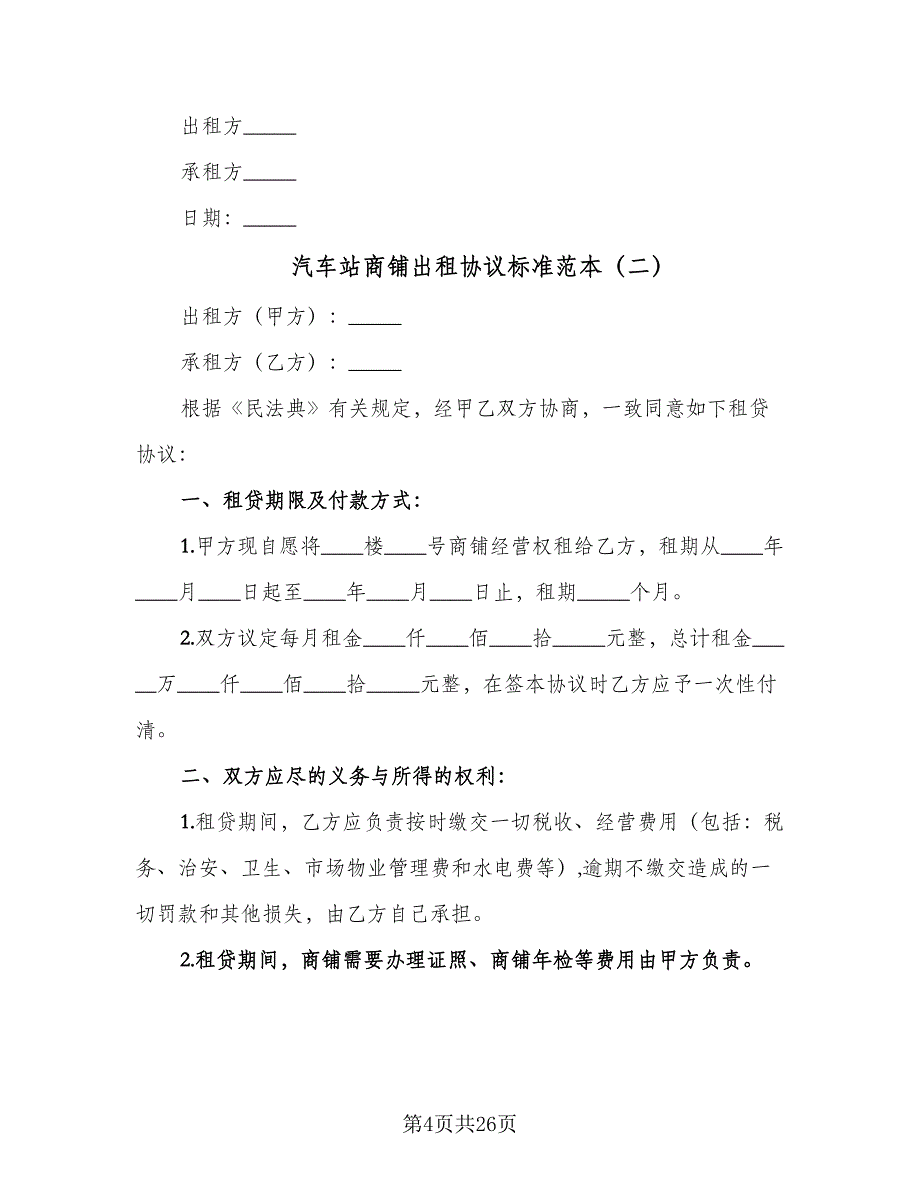 出租方_____
承租方_____
日期：_____
汽车站商铺出租协议标准范本（二）
出租方（甲方）：_____
承租方（乙方）：_____
根据《民法典》有关规定，经甲乙双方协商，一致同意如下租贷
协议：
一、租贷期限及付款方式：
1.甲方现自愿将____楼____号商铺经营权租给乙方，租期从____年
____月____日起至____年____月____日止，租期_____个月。
2.双方议定每月租金____仟____佰____拾_____元整，总计租金___
__万____仟____佰____拾_____元整，在签本协议时乙方应予一次性付
清。
二、双方应尽的义务与所得的权利：
1.租贷期间，乙方应负责按时缴交一切税收、经营费用（包括：税
务、治安、卫生、市场物业管理费和水电费等）,逾期不缴交造成的一
切罚款和其他损失，由乙方自己承担。
2.租贷期间，商铺需要办理证照、商铺年检等费用由甲方负责。
第4页共26页